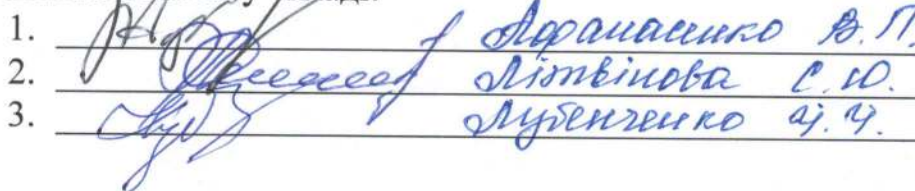 1. Афанасенко В.П.
2. Літвінова С.Ю.
3. Лубенченко